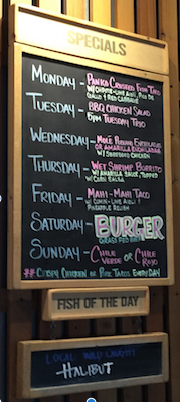 SPECIALS
MONDAY - PANKO CRUSTED FISH TACO
W/ CHIPOTLE-LIME AIOLI, PICO DE
GALLO & RED CABBAGE
TUESDAY - BBQ CHICKEN SALAD
5PM TUESDAY TRIO
WEDNESDAY - MOLE POBLANO ENCHILADAS
OR AMARILLO ENCHILADAS
W/ SHREDDED CHICKEN
THURSDAY - WET SHRIMP BURRITO
W/ AMARILLO SAUCE, TOPPED
W/ CORN SALSA
FRIDAY - MAHI-MAHI TACO
W/ CHIPOTLE-LIME AIOLI &
PINEAPPLE RELISH
SATURDAY - BURGER
GRASS FED BEEF
SUNDAY - CHILE
VERDE OR CHILE
ROJO
CRISPY CHICKEN OR PORK TACOS EVERY DAY
FISH OF THE DAY
LOCAL WILD CAUGHT
-HALIBUT